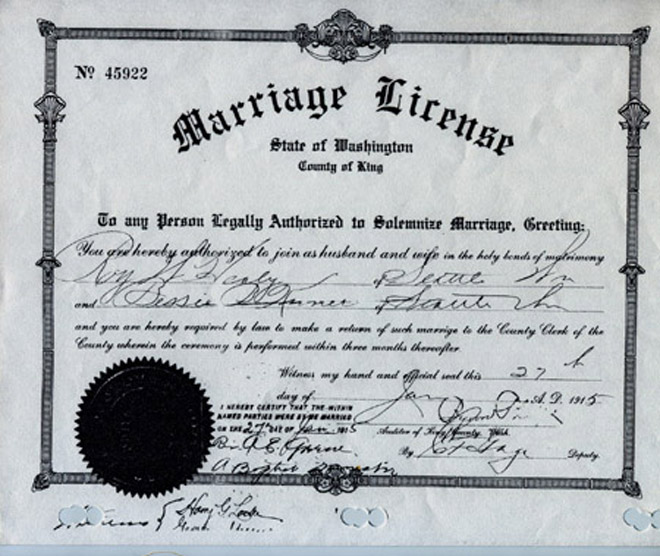 Nº 45922
Marriage License
State of Washington
County of King
To any Person Legally Authorized to Solemnize Marriage, Greeting:
You are hereby authorized to join as husband and wife in the holy bonds of matrimony
Roy of Seattle Wn
and Bessie of Seattle Wn
and you are hereby required by law to make a return of such marrige to the County Clerk of the
County wherein the ceremony is performed within three months thereafter.
Witness my hand and official seal this 27 th
day of Jan A.D. 1915
Auditor of King County, Wash.
By Deputy.
I HEREBY CERTIFY THAT THE WITHIN
NAMED PARTIES WERE BY ME MARRIED
ON THE 27th DAY OF Jan. 1915
A Baptist
Harry G.